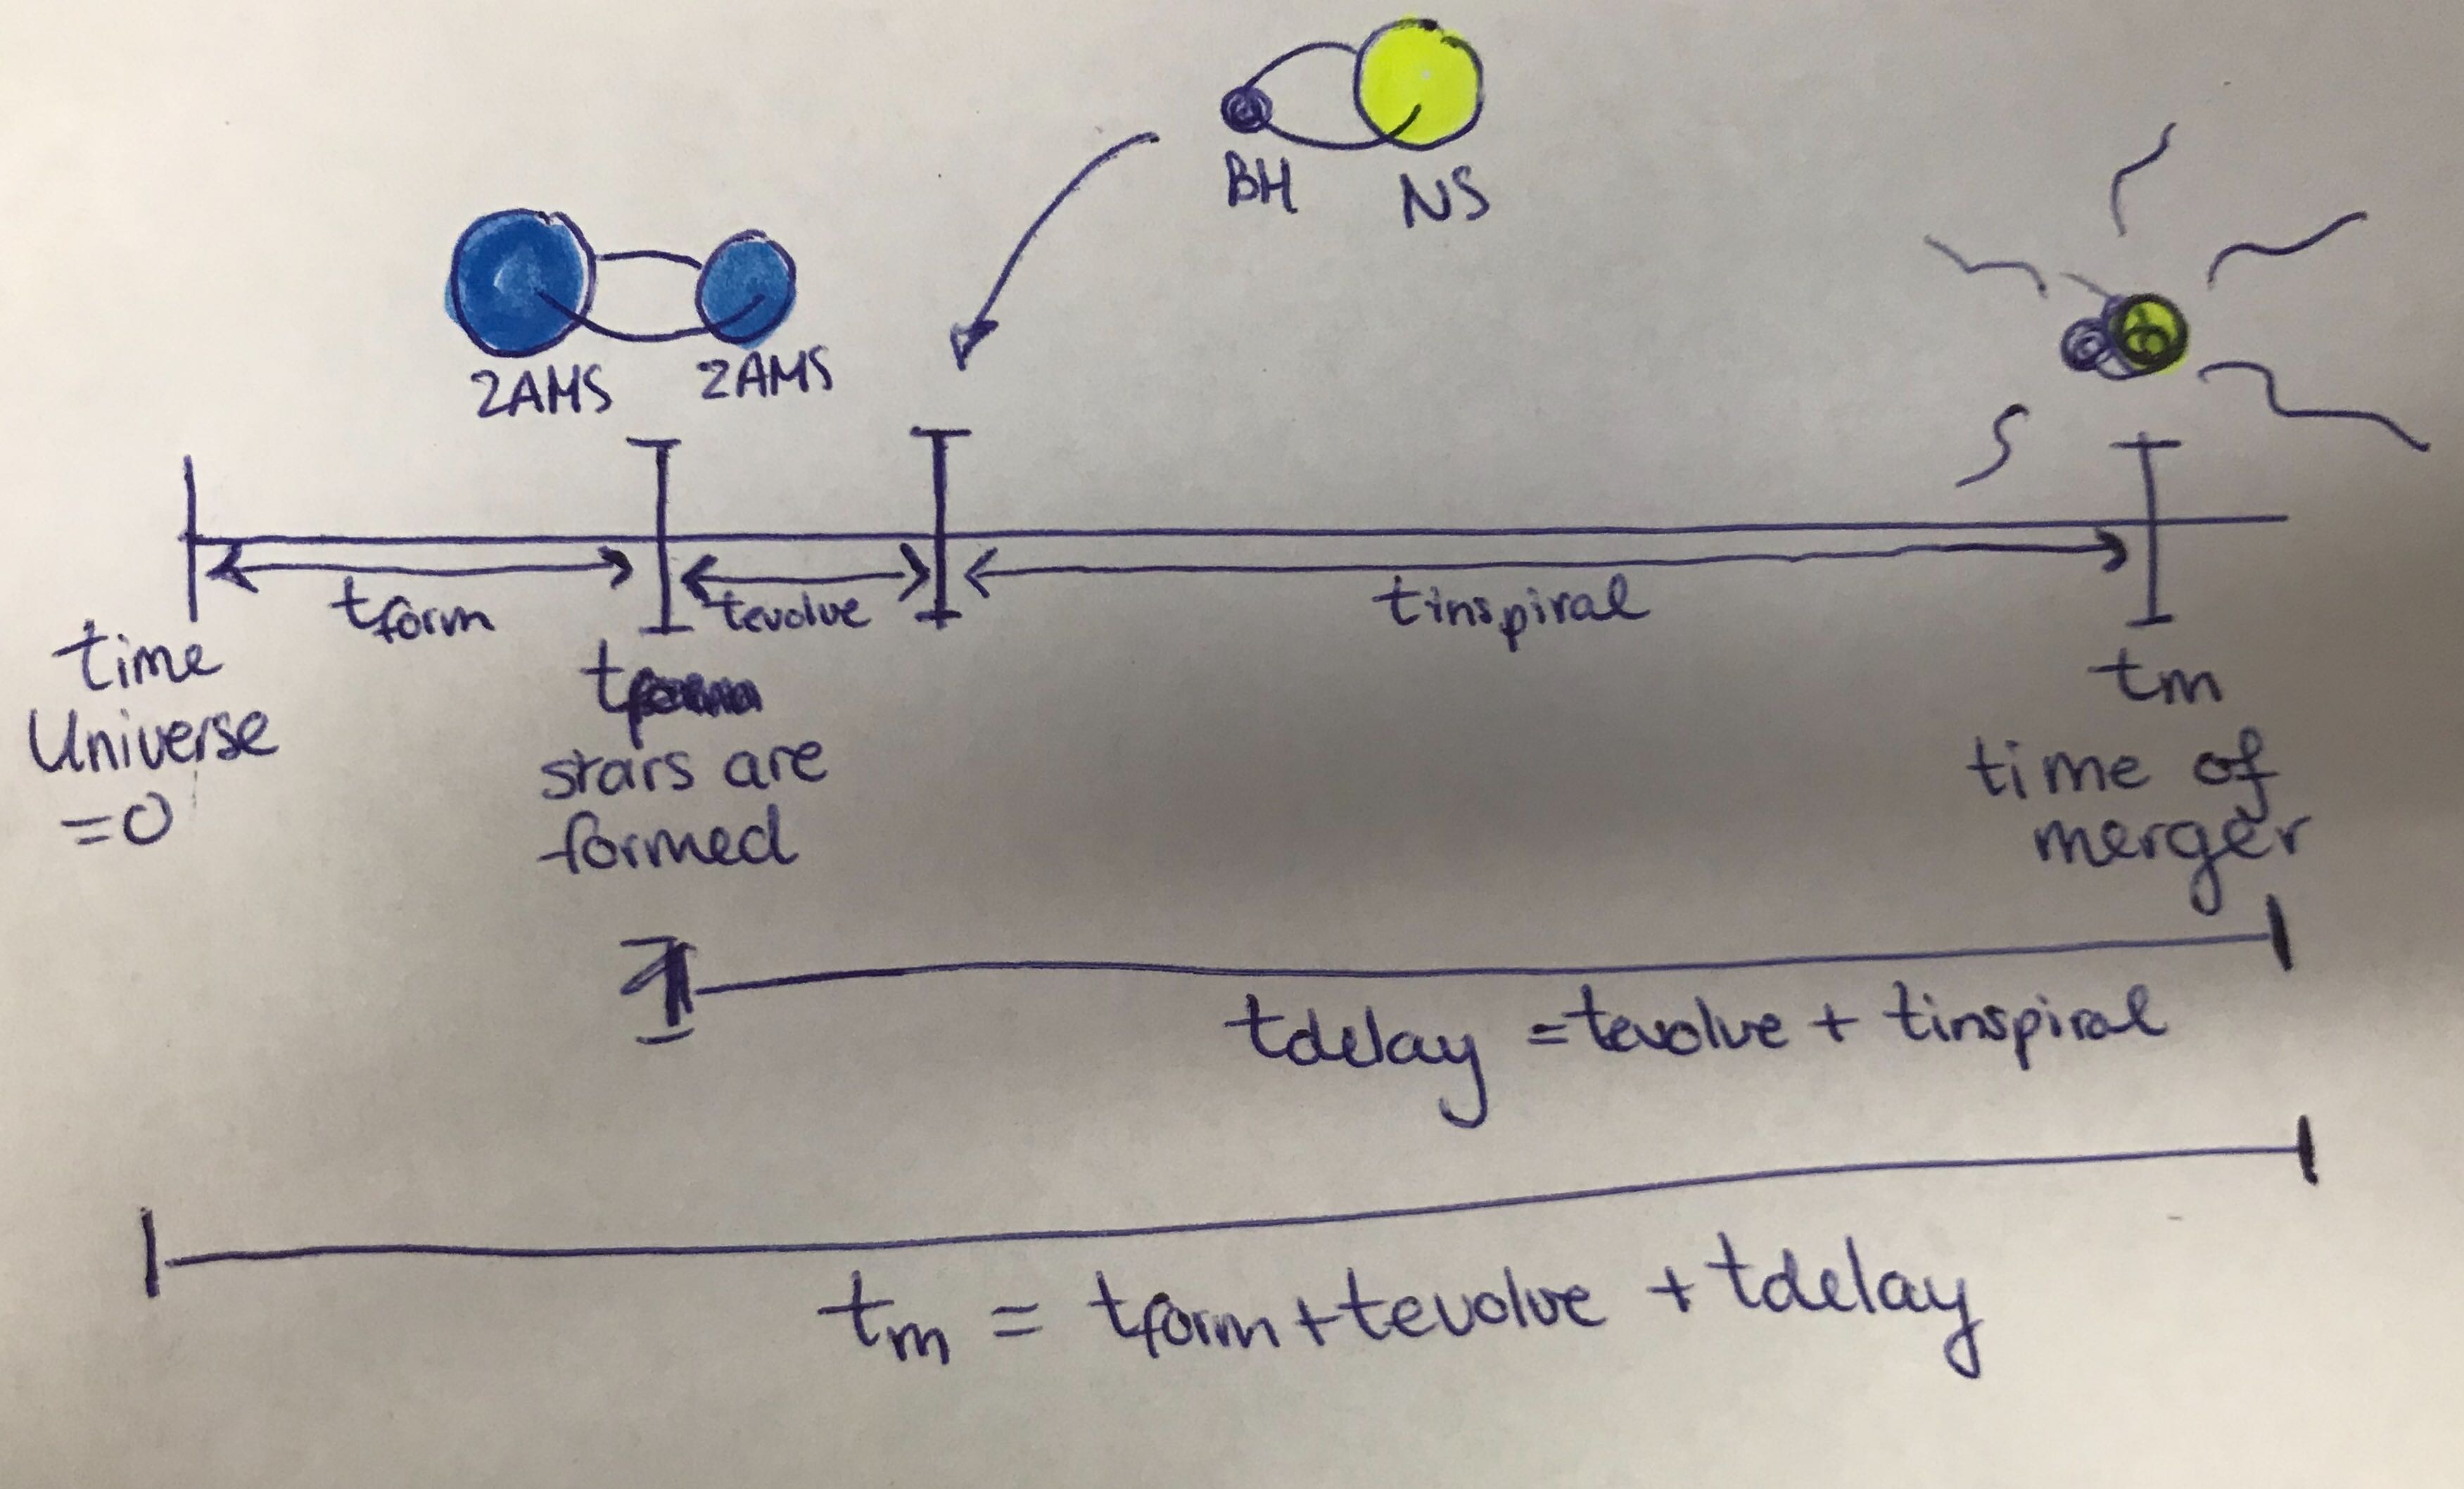 BH NS
ZAMS ZAMS
tform tevolve tinspiral
time
Universe
=0
t
stars are
formed
tm
time of
merger
tdelay = tevolve + tinspiral
tm = tform + tevolve + tdelay